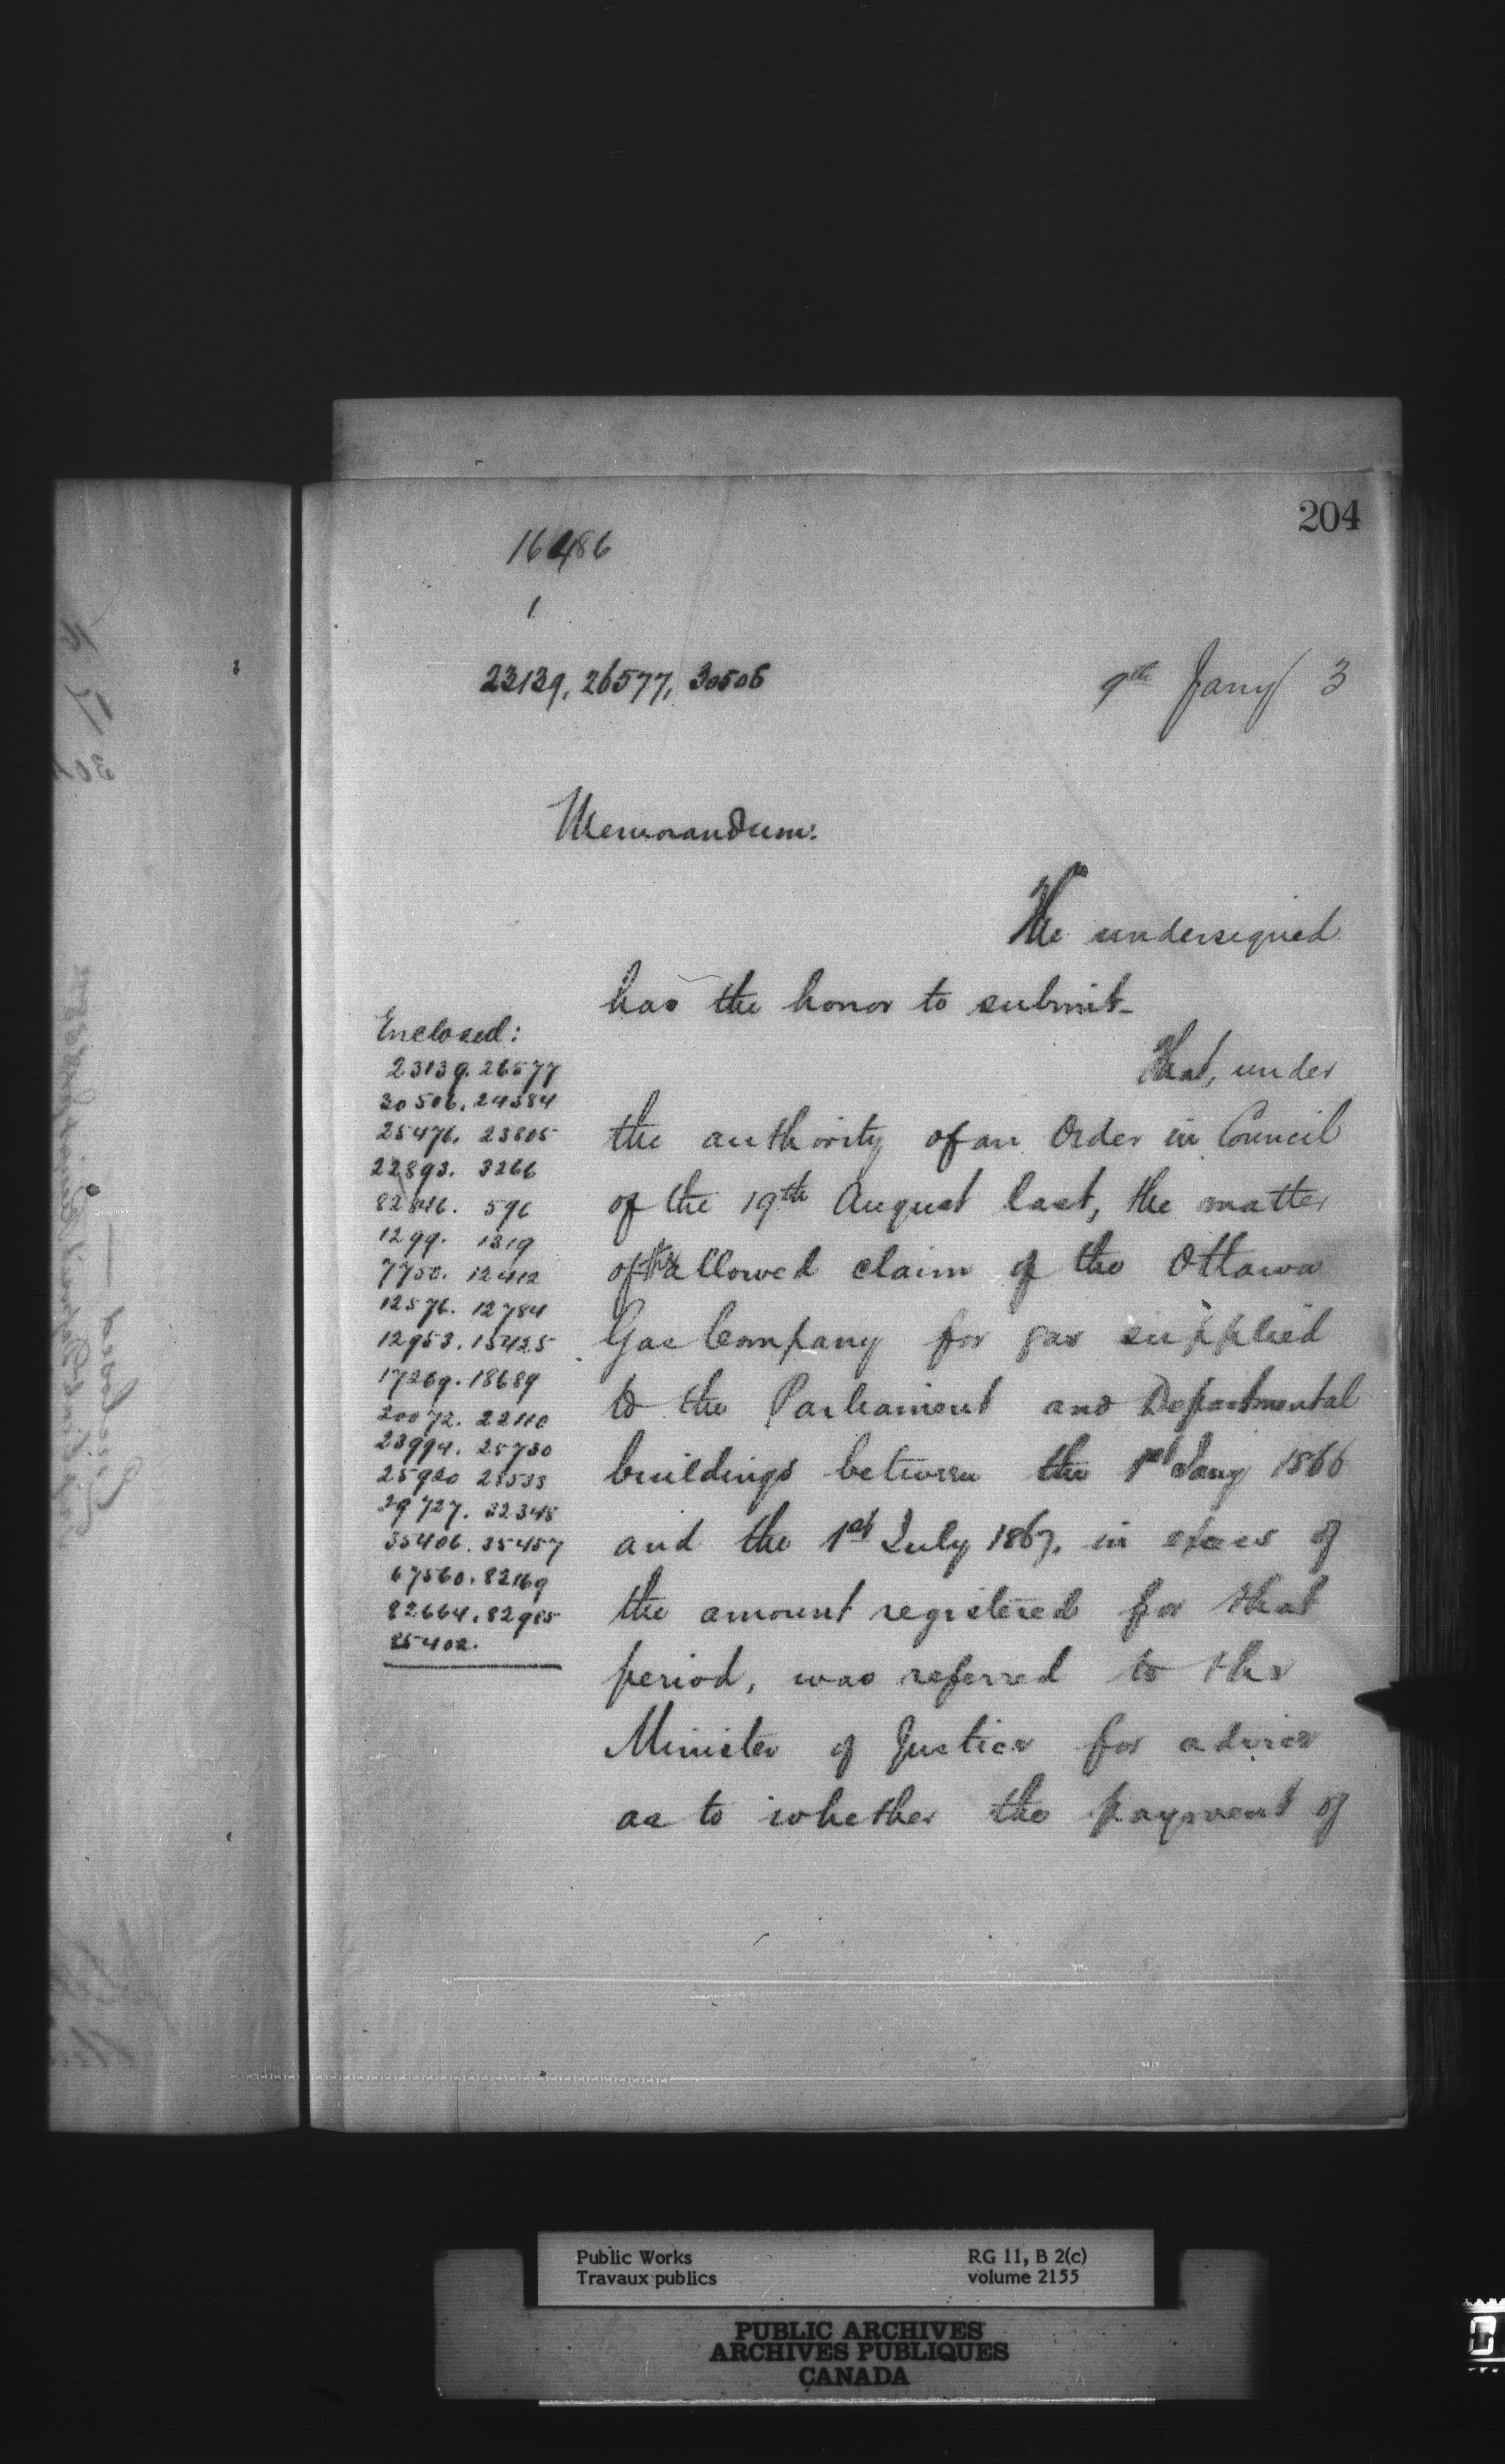 204
16486
1
23139, 26577, 30506
9th Jany / 3
Memorandum.
The undersigned
has the honor to submit_
That, under
the authority of an Order in Council
of the 19th August last, the matter
of the allowed claim of the Ottawa
Gas Company for gas supplied
to the Parliament and Departmental
buildings between the 1st Jany 1866
and the 1st July 1867, in excess of
the amount registered for that
period, was referred to the
Minister of Justice for advice
as to whether the payment of
Enclosed:
23139. 26577
30506. 24384
25476. 23805
22893. 3266
596
1299. 1319
7750. 12412
12576. 12784
12953. 15425
17269. 18689
20072. 22110
23994. 25730
25920 28533
29727. 32348
35406. 35457
67560. 82169
82664. 82985
85402.
Public Works
Travaux publics
RG 11, B 2(c)
volume 2155
PUBLIC ARCHIVES
ARCHIVES PUBLIQUES
CANADA